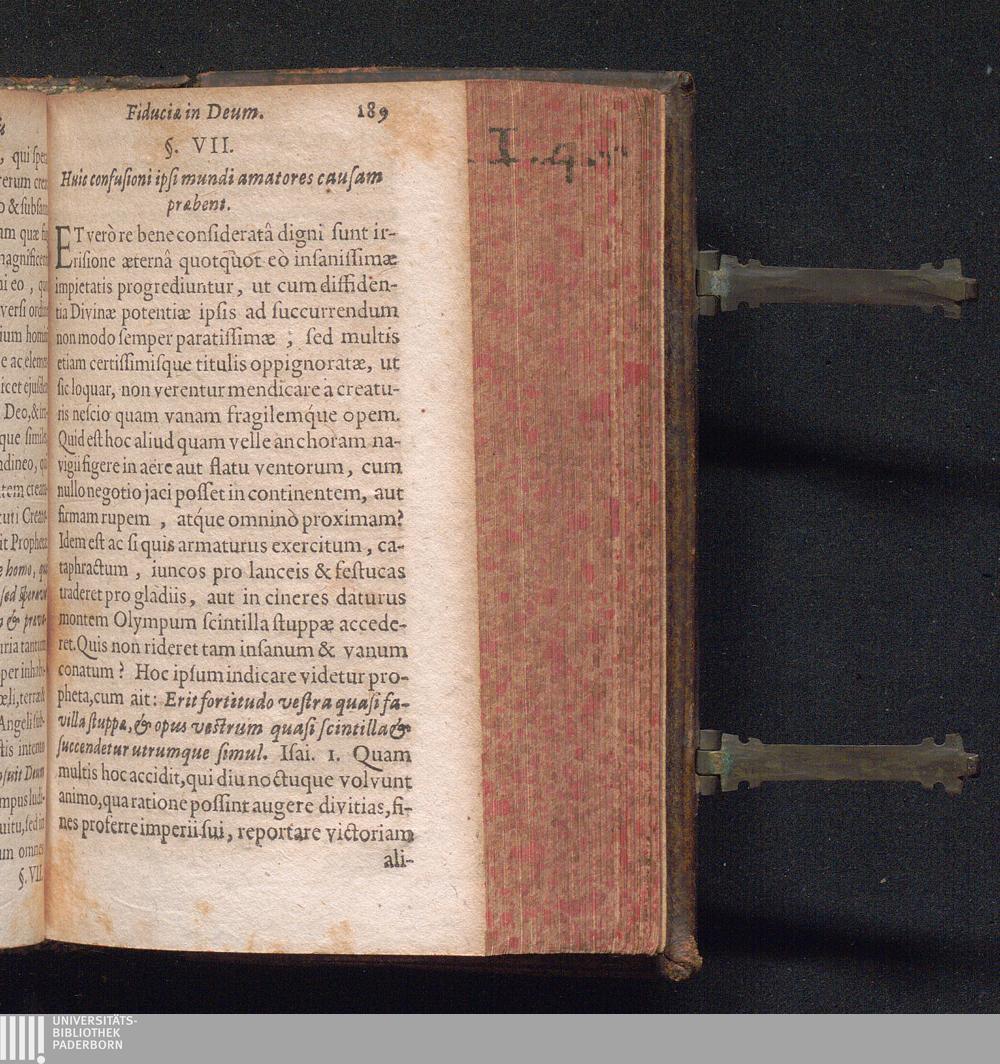 Fiduciæ in Deum. 189
§. VII.
Huic confusioni ipsi mundi amatores causam
præbent.
ET verò re bene consideratâ digni sunt ir-
risione æternâ quotquot eò insanissimæ
impietatis progrediuntur, ut cum diffiden-
tia Divinæ potentiæ ipsis ad succurrendum
non modo semper paratissimæ ; sed multis
etiam certissimisque titulis oppignoratæ, ut
sic loquar, non verentur mendicare à creatu-
ris nescio quam vanam fragilemq́ue opem.
Quid est hoc aliud quam velle anchoram na-
vigii figere in aëre aut flatu ventorum, cum
nullo negotio jaci posset in continentem, aut
firmam rupem , atq́ue omninò proximam?
Idem est ac si quis armaturus exercitum, ca-
taphractum , iuncos pro lanceis & festucas
traderet pro gladiis, aut in cineres daturus
montem Olympum scintilla stuppæ accede-
ret. Quis non rideret tam insanum & vanum
conatum? Hoc ipsum indicare videtur pro-
pheta, cum ait: Erit fortitudo vestra quasi fa-
villa stuppæ, & opus vestrum quasi scintilla &
succendetur utrumque simul. Isai. 1. Quam
multis hoc accidit, qui diu noctuque volvunt
animo, qua ratione possint augere divitias, fi-
nes proferre imperii sui, reportare victoriam
ali-
, qui spe
o & subsan
nagnificen
ni eo , qu
versi ordin
ium homin
Deo, & in
que simile
it Prophet
e homo, qu
sed sperav
n & prava
uria tantum
per inhab
Angeli sub
stis intento
osuit Deum
mpus ludi-
uitu, sed in
um omnes
§. VII.
I. 9.
UNIVERSITÄTS-
BIBLIOTHEK
PADERBORN